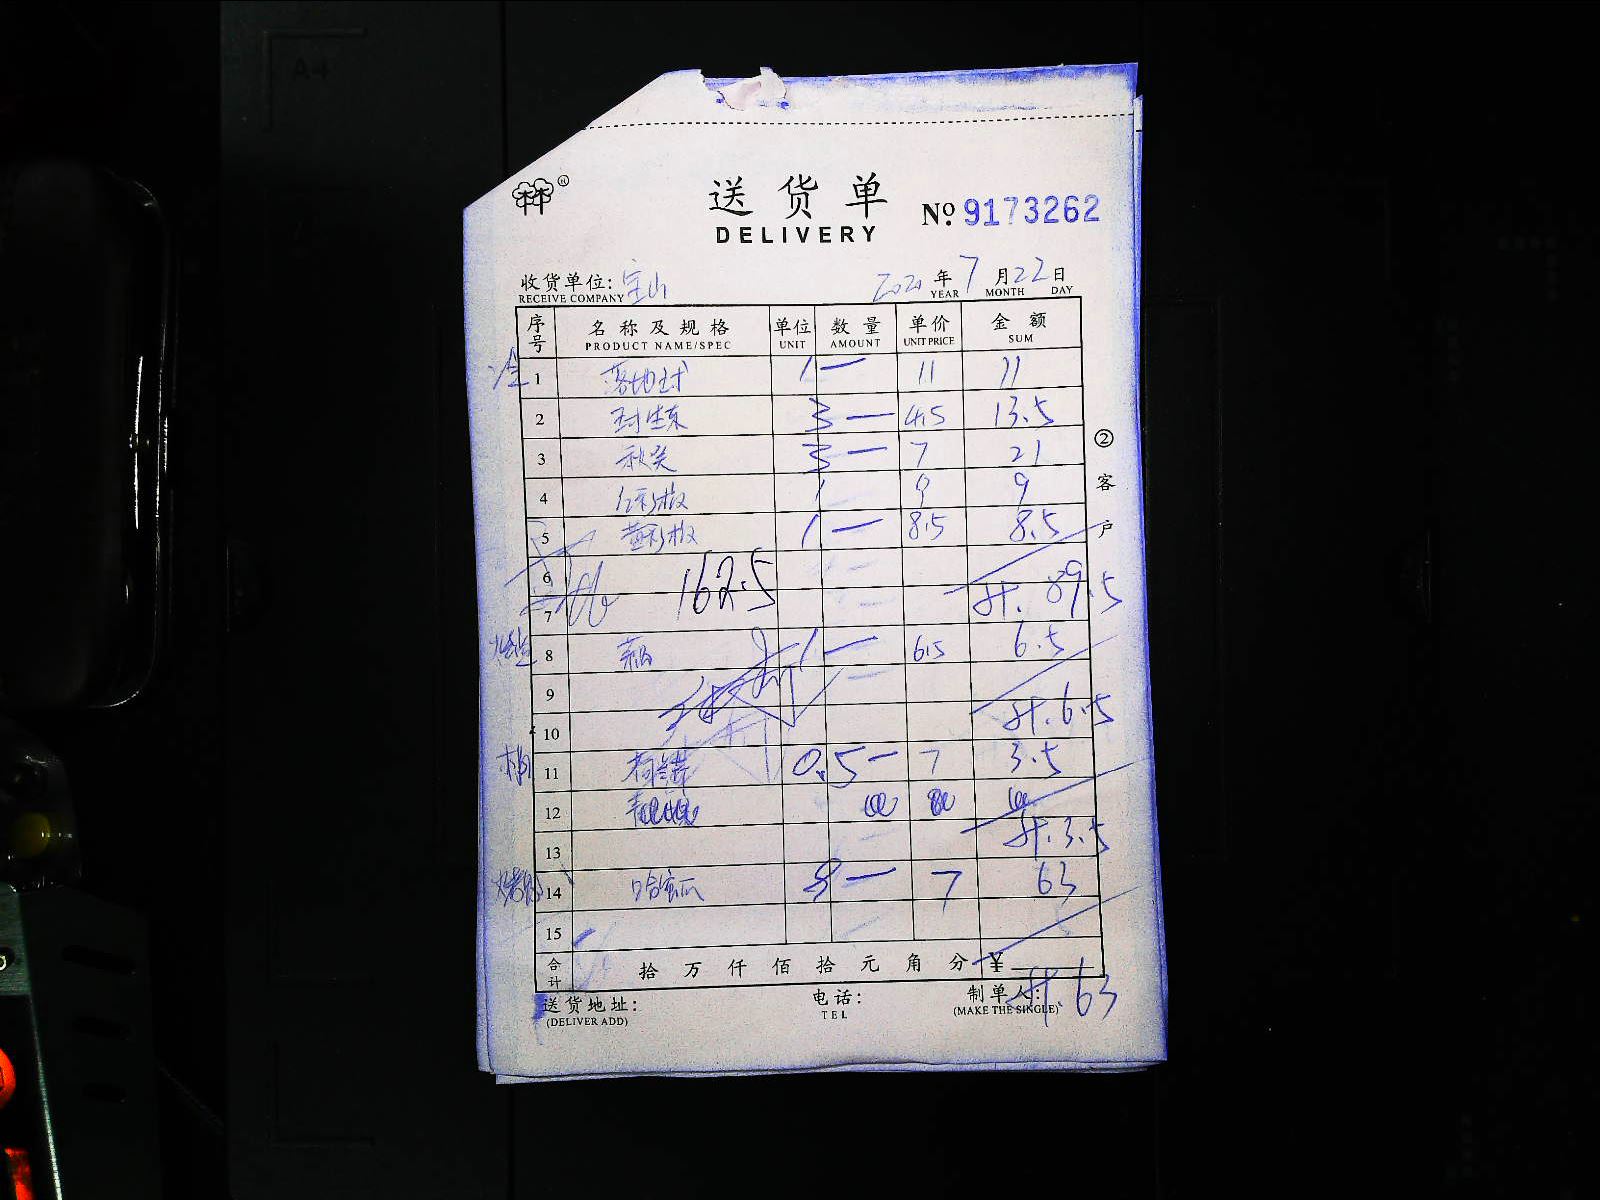 A4
送货单
DELIVERY
Nº 9173262
收货单位: 宝山
RECEIVE COMPANY
2020 年 7 月 22 日
YEAR MONTH DAY
序号 名称及规格 单位 数量 单价 金额
PRODUCT NAME/SPEC UNIT AMOUNT UNIT PRICE SUM
1 1 — 11 11
2 3 — 4.5 13.5
3 秋葵 3 — 7 21
4 红彩椒 1 9 9
5 黄彩椒 1 — 8.5 8.5
6
162.5
7 计. 89.5
8 1 — 6.5 6.5
9
10 计. 6.5
11 0.5 — 7 3.5
12
13 计. 3.5
14 哈密瓜 — 7 63
15
合计 拾 万 仟 佰 拾 元 角 分 ¥
计. 63
送货地址: 电话: 制单人:
(DELIVER ADD) TEL (MAKE THE SINGLE)
② 客户